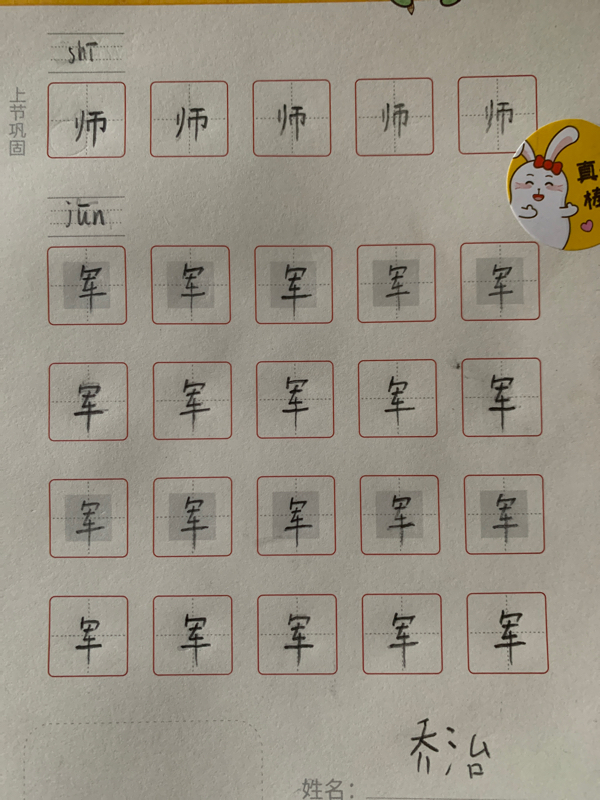 shī
上节巩固
师 师 师 师 师
真棒
jūn
军 军 军 军 军
军 军 军 军 军
军 军 军 军 军
军 军 军 军 军
乔治
姓名: